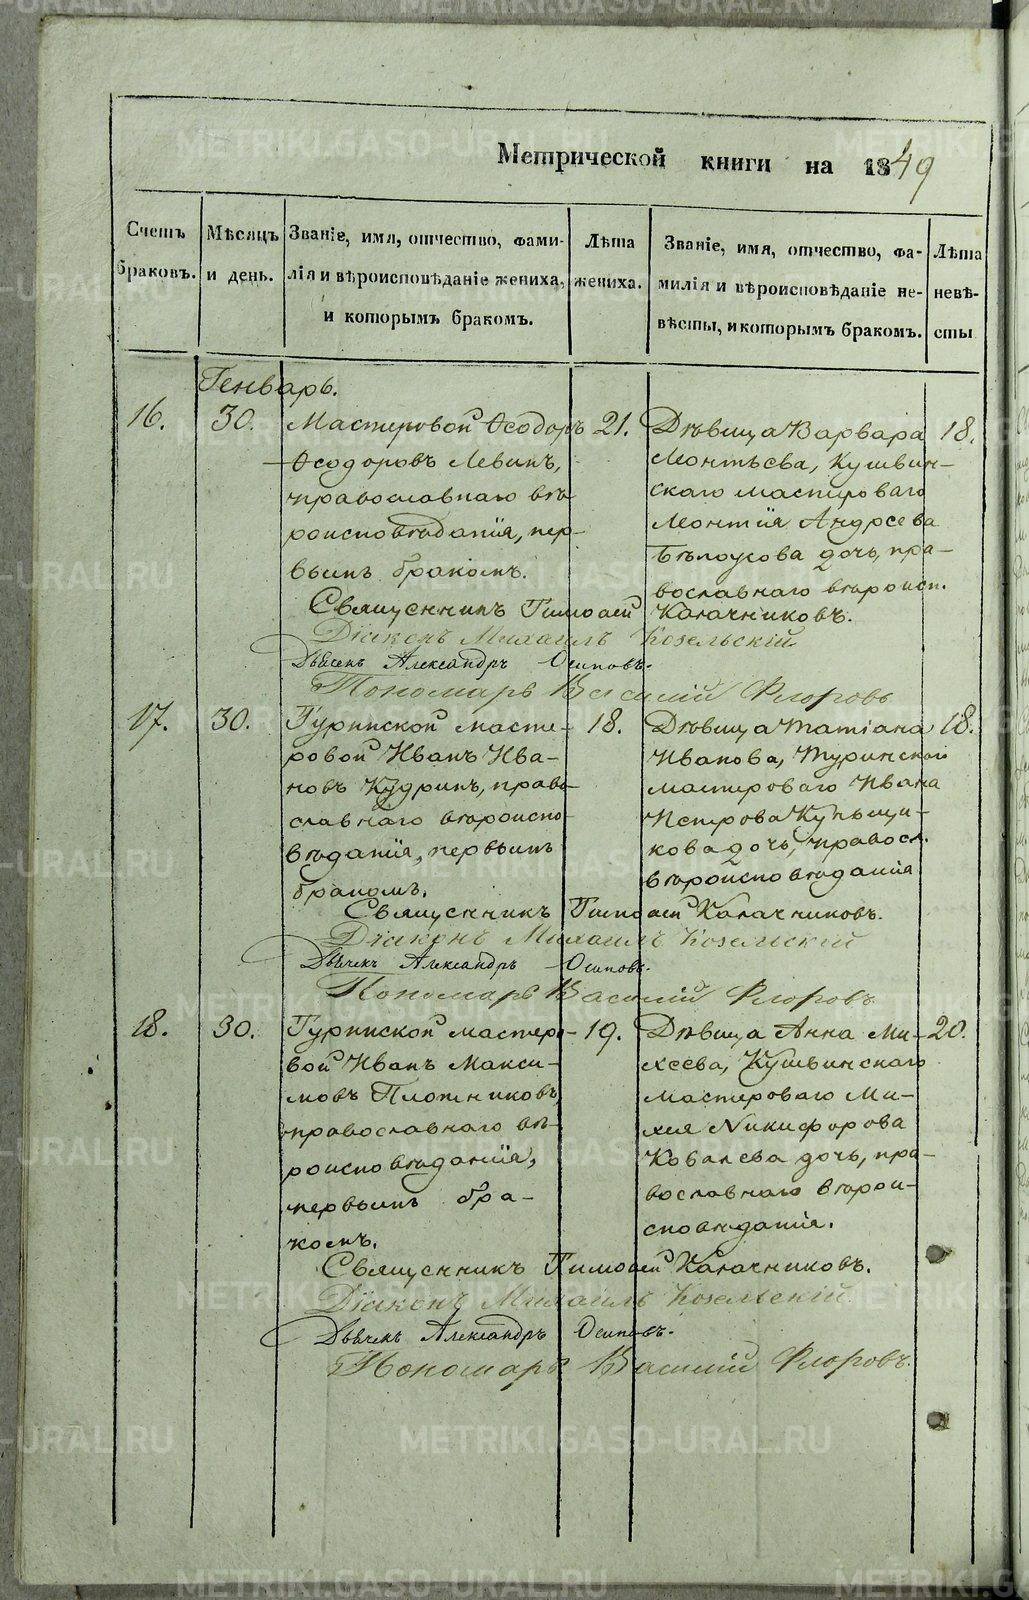 Метрической книги на 1849
Счетъ браковъ.
Мѣсяцъ и день.
Званіе, имя, отчество, фами-
лія и вѣроисповѣданіе жениха,
и которымъ бракомъ.
Лѣта жениха.
Званіе, имя, отчество, фа-
милія и вѣроисповѣданіе не-
вѣсты, и которымъ бракомъ.
Лѣта невѣ-
сты
Генварь.
16.
30.
Мастеровой Ѳеодоръ
Ѳеодоровъ Левинъ,
православнаго вѣ-
роисповѣданія, пер-
вымъ бракомъ.
21.
Дѣвица Варвара
Леонтьева, Кушвин-
скаго мастероваго
Леонтія Андреева
Бѣлоусова дочь, пра-
вославнаго вѣроисп.
18.
Священникъ Тимоѳей Калачниковъ.
Діаконъ Михаилъ Козельскій
Дьячекъ Александръ Осиповъ.
Пономарь Василій Флоровъ
17.
30.
Туринской масте-
ровой Иванъ Ива-
новъ Кудринъ, право-
славнаго вѣроиспо-
вѣданія, первымъ
бракомъ.
18.
Дѣвица Татіана
Иванова, Туринской
мастероваго Ивана
Петрова Купьщи-
кова дочь, правосл.
вѣроисповѣданія
18.
Священникъ Тимоѳей Калачниковъ.
Діаконъ Михаилъ Козельскій
Дьячекъ Александръ Осиповъ.
Пономарь Василій Флоровъ
18.
30.
Туринской мастеро-
вой Иванъ Макси-
мовъ Плотниковъ,
православнаго вѣ-
роисповѣданія,
первымъ бра-
комъ.
19.
Дѣвица Анна Ми-
хеева, Кушвинскаго
мастероваго Ми-
хея Никифорова
Ковалева дочь, пра-
вославнаго вѣрои-
сповѣданія.
20.
Священникъ Тимоѳей Калачниковъ.
Діаконъ Михаилъ Козельскій
Дьячекъ Александръ Осиповъ.
Пономарь Василій Флоровъ.
METRIKI.GASO-URAL.RU